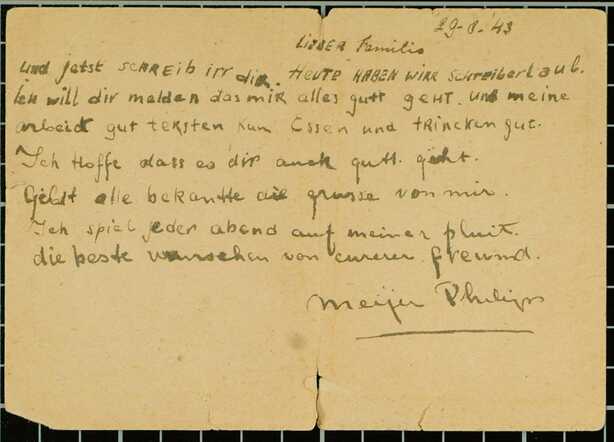 29-8-'43
LIEBER Familie
und jetst SCHREIB irr die. HEUTE HABEN WIRR Schreiberlaub.
Ich will dir melden das mir alles gutt geht. und meine
arbeit gut teksten kun Essen und trincken gut.
Ich Hoffe dass es dir auch gutt. geht.
Gebt alle bekantte die grusse von mir.
Ich spiel jeder abend auf meiner pluit.
die beste wunschen von eurerer freund.
Meijer Philips